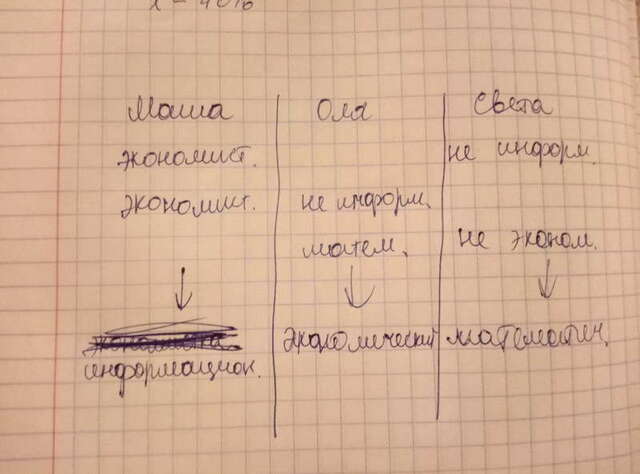 х - 40%
Маша Оля Света
экономист. не информ.
экономист. не информ.
матем. не эконом.
экономический математич.
информацион.